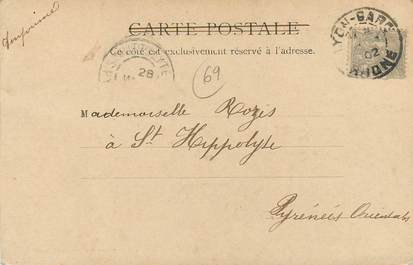 Imprimé
CARTE POSTALE
Ce côté est exclusivement réservé à l'adresse.
LYON-GARE
02
RHONE
28
69
Mademoiselle Rozis
à St Hippolyte
Pyrénéés Orientales